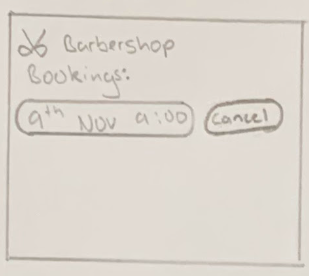 Barbershop
Bookings:
9th Nov 9:00 cancel